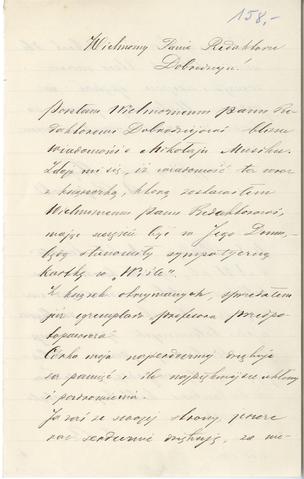 158,-
Wielmożny Panie Redaktorze
Dobrodzieju!
Posyłam Wielmożnemu Panu Re-
daktorowi Dobrodziejowi
wiadomość o Mikołaju
Zdaje mi się, iż wiadomość ta wraz
z książeczką, którą zostawiłem
Wielmożnemu Panu Redaktorowi,
może być w Jego
stanowić sympatyczną
kartkę w „Wiśle".
Z książek otrzymanych, sprzedałem
już egzemplarz profesora
Córka moja najserdeczniej dziękuje
za pamięć i śle najpiękniejsze ukłony
i pozdrowienia.
Ja zaś ze swojej strony, jeszcze
raz serdecznie dziękuję, za